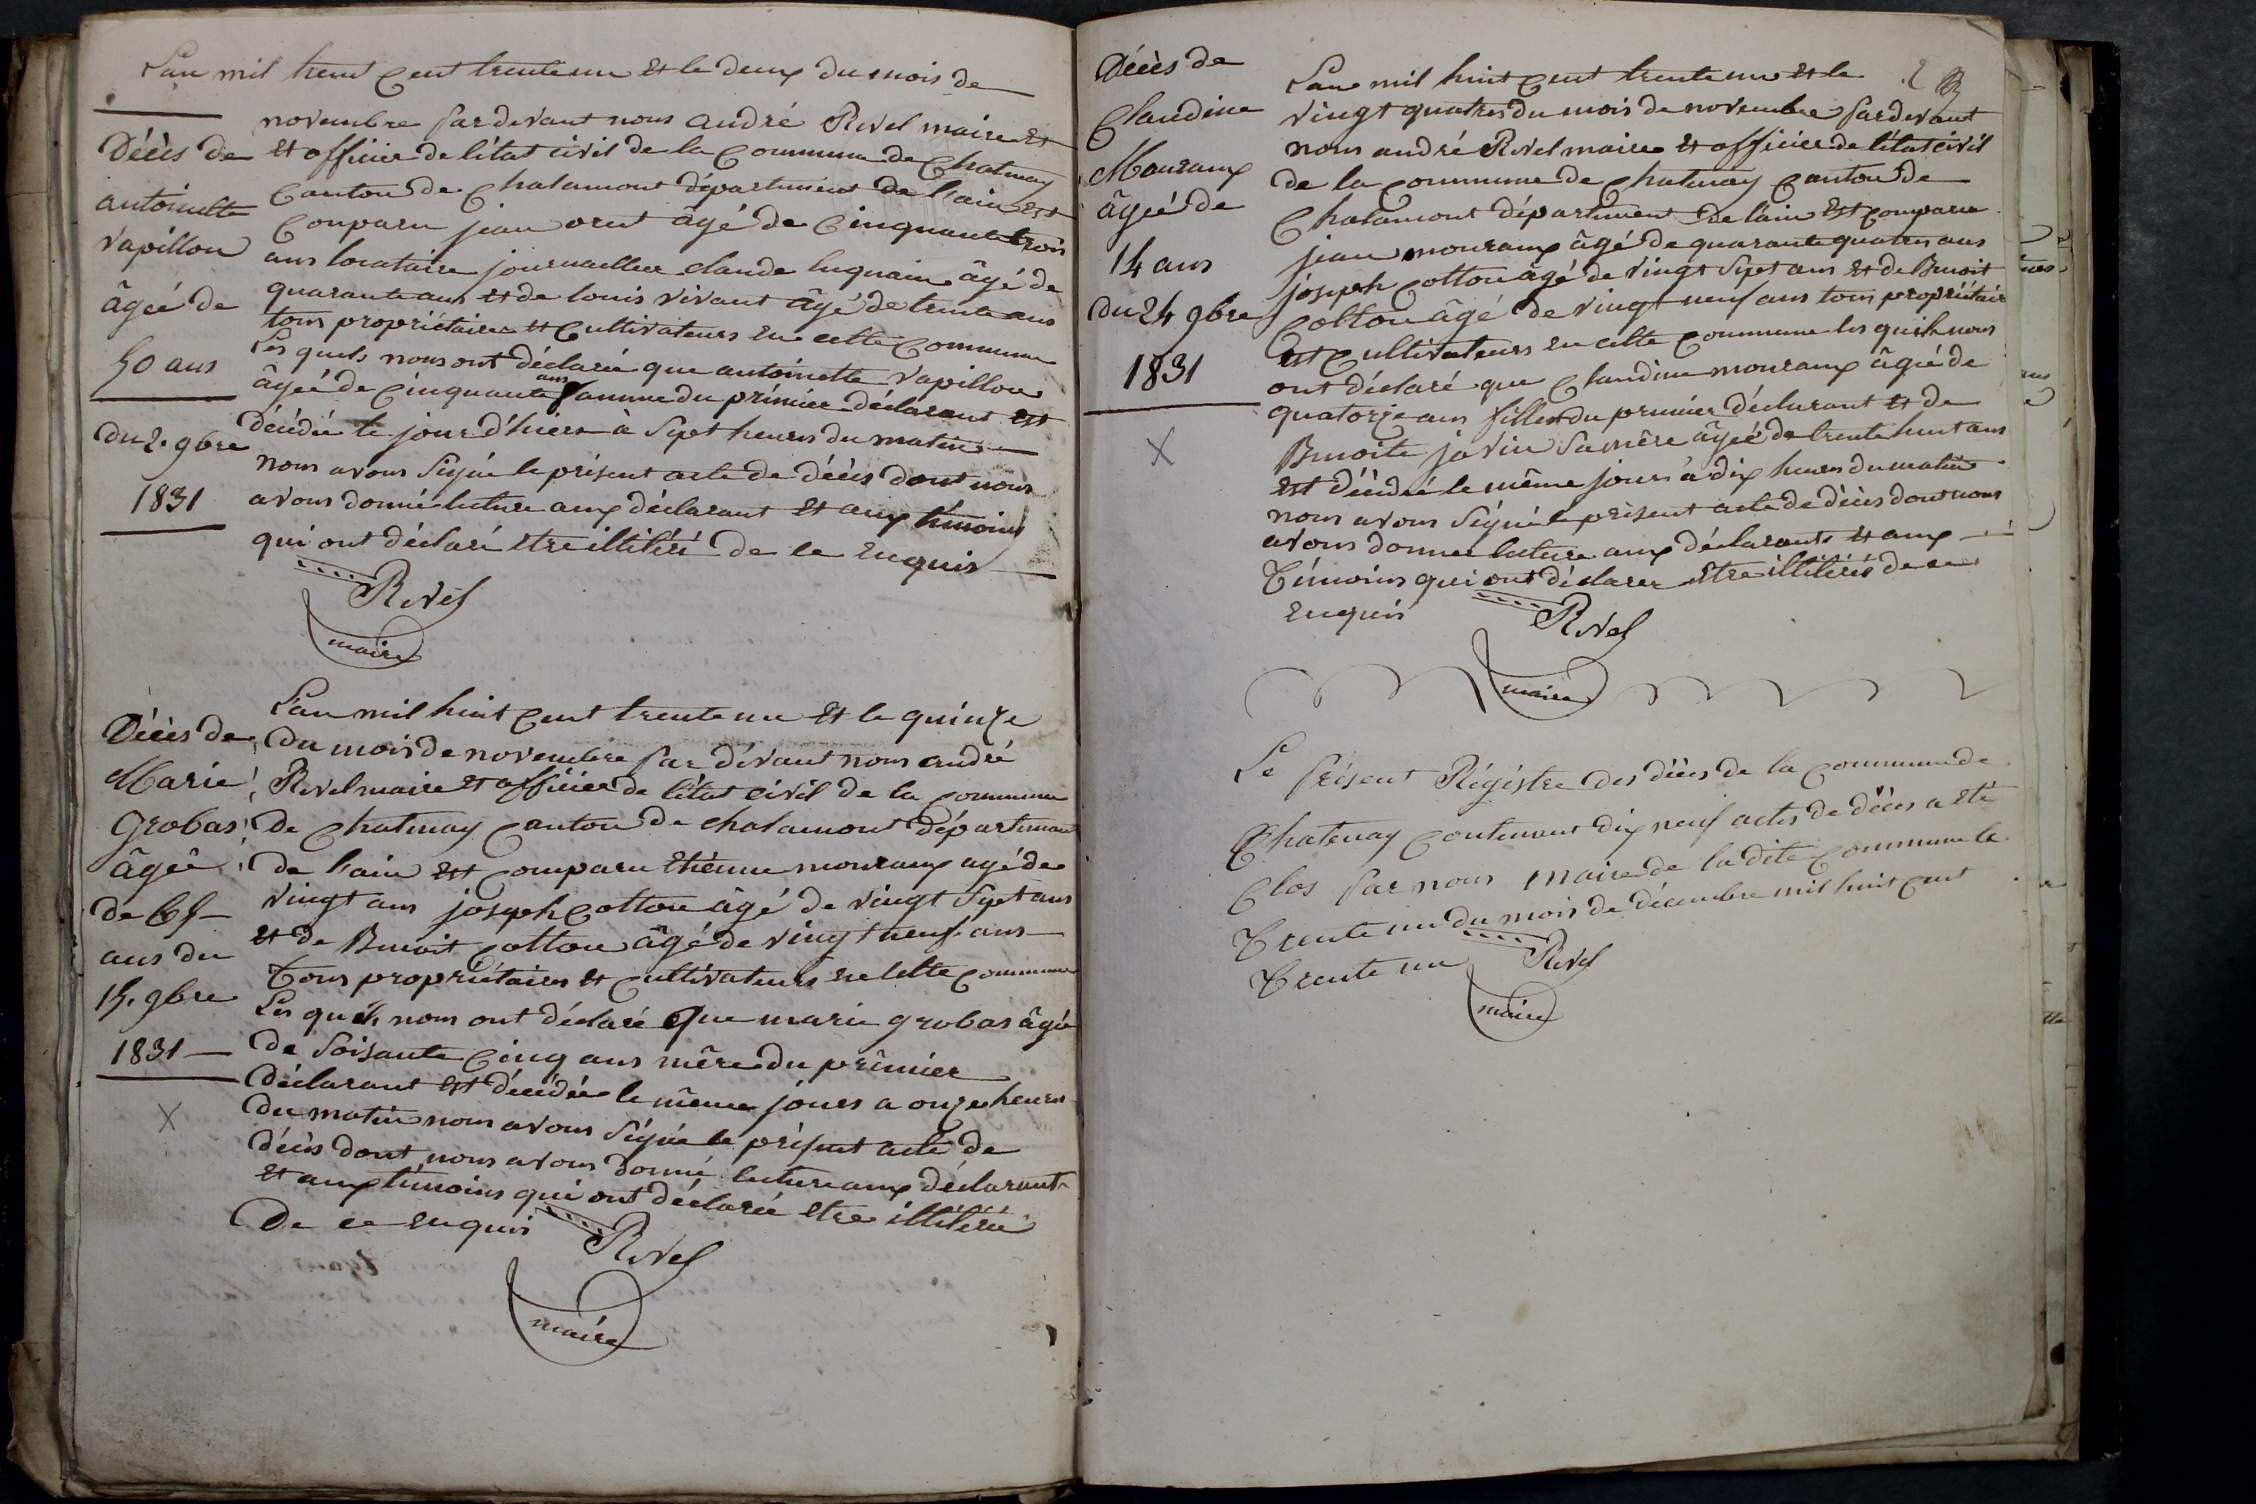 L'an mil huit cent trente un et le deux du mois de
novembre par devant nous andré Rivel maire et
et officier de l'état civil de la Commune de Chatenay
Canton de Chalamont département de l'ain est
Comparu jean âgé de Cinquante trois
ans locataire journailler claude luquain âgé de
quarante ans et de louis vivant âgé de trente ans
tous propriétaires et Cultivateurs en cette Commune
Les quels nous ont déclaré que antoinette vapillon
âgée de Cinquante ans famme du prémier déclarant est
décédée le jour d'hiers à Sept heures du matin
nous avons Signée le présent acte de décès dont nous
avons donné lecture aux déclarant et aux témoins
qui ont déclaré etre illitéré de ce enquis
Rivel
maire
Décès de
antoinette
vapillon
âgée de
50 ans
du 2. 9bre
1831
L'an mil huit cent trente un et le quinze
du mois de novembre par dévant nous andré
Rivel maire et officier de l'état civil de la commune
de Chatenay Canton de chalamont département
de l'ain est Comparu etiénne mouraux agé de
vingt ans joseph Cotton âgé de vingt Sept ans
et de Benoit Cotton âgé de vingt neuf ans
Tous propriétaires et Cultivateurs en cette Commune
Les quels nous ont déclaré que marie grobas âgée
de Soisante Cinq ans mère du prémier
déclarant est décédée le même jours a onze heures
du matin nous avons Signée le présent acte de
décès dont nous avons donné lecture aux déclarant
et aux témoins qui ont déclarée etre illitéré
De ce enquis
Rivel
maire
Décès de
Marie
grobas
âgée
de 65
ans du
15. 9bre
1831
X
L'an mil huit Cent trente un et le
vingt quatres du mois de novembre par devant
nous andré Rivel maire et officier de l'état civil
de la Commune de Chatenay Canton de
Chalamont département de l'ain est comparu
jean mouraux âgé de quarante quatres ans
joseph Cotton âgé de vingt Sept ans et de Benoit
Cotton âgé de vingt neuf ans tous propriétair
et Cultivateurs en cette Commune les quels nous
ont déclaré que Claudine mouraux âgée de
quatorze ans filles du premier déclarant et de
Benoite javin Sa mère âgée de trente huit ans
est décédée le même jours à dix heures du matin
nous avons Signé le présent acte de décès dont nous
avons donner lecture aux déclarants et aux
Témoins qui ont déclarer etre illitérés de ce
enquis
Rivel
maire
Décès de
Claudine
Mouraux
âgée de
14 ans
du 24 9bre
1831
X
Le présent Régistre des décès de la Commune de
Chatenay Contenant dix neuf actes de décès a été
Clos par nous maire de la dite Commune le
Trente un du mois de décembre mil huit cent
Trente un
Rivel
maire